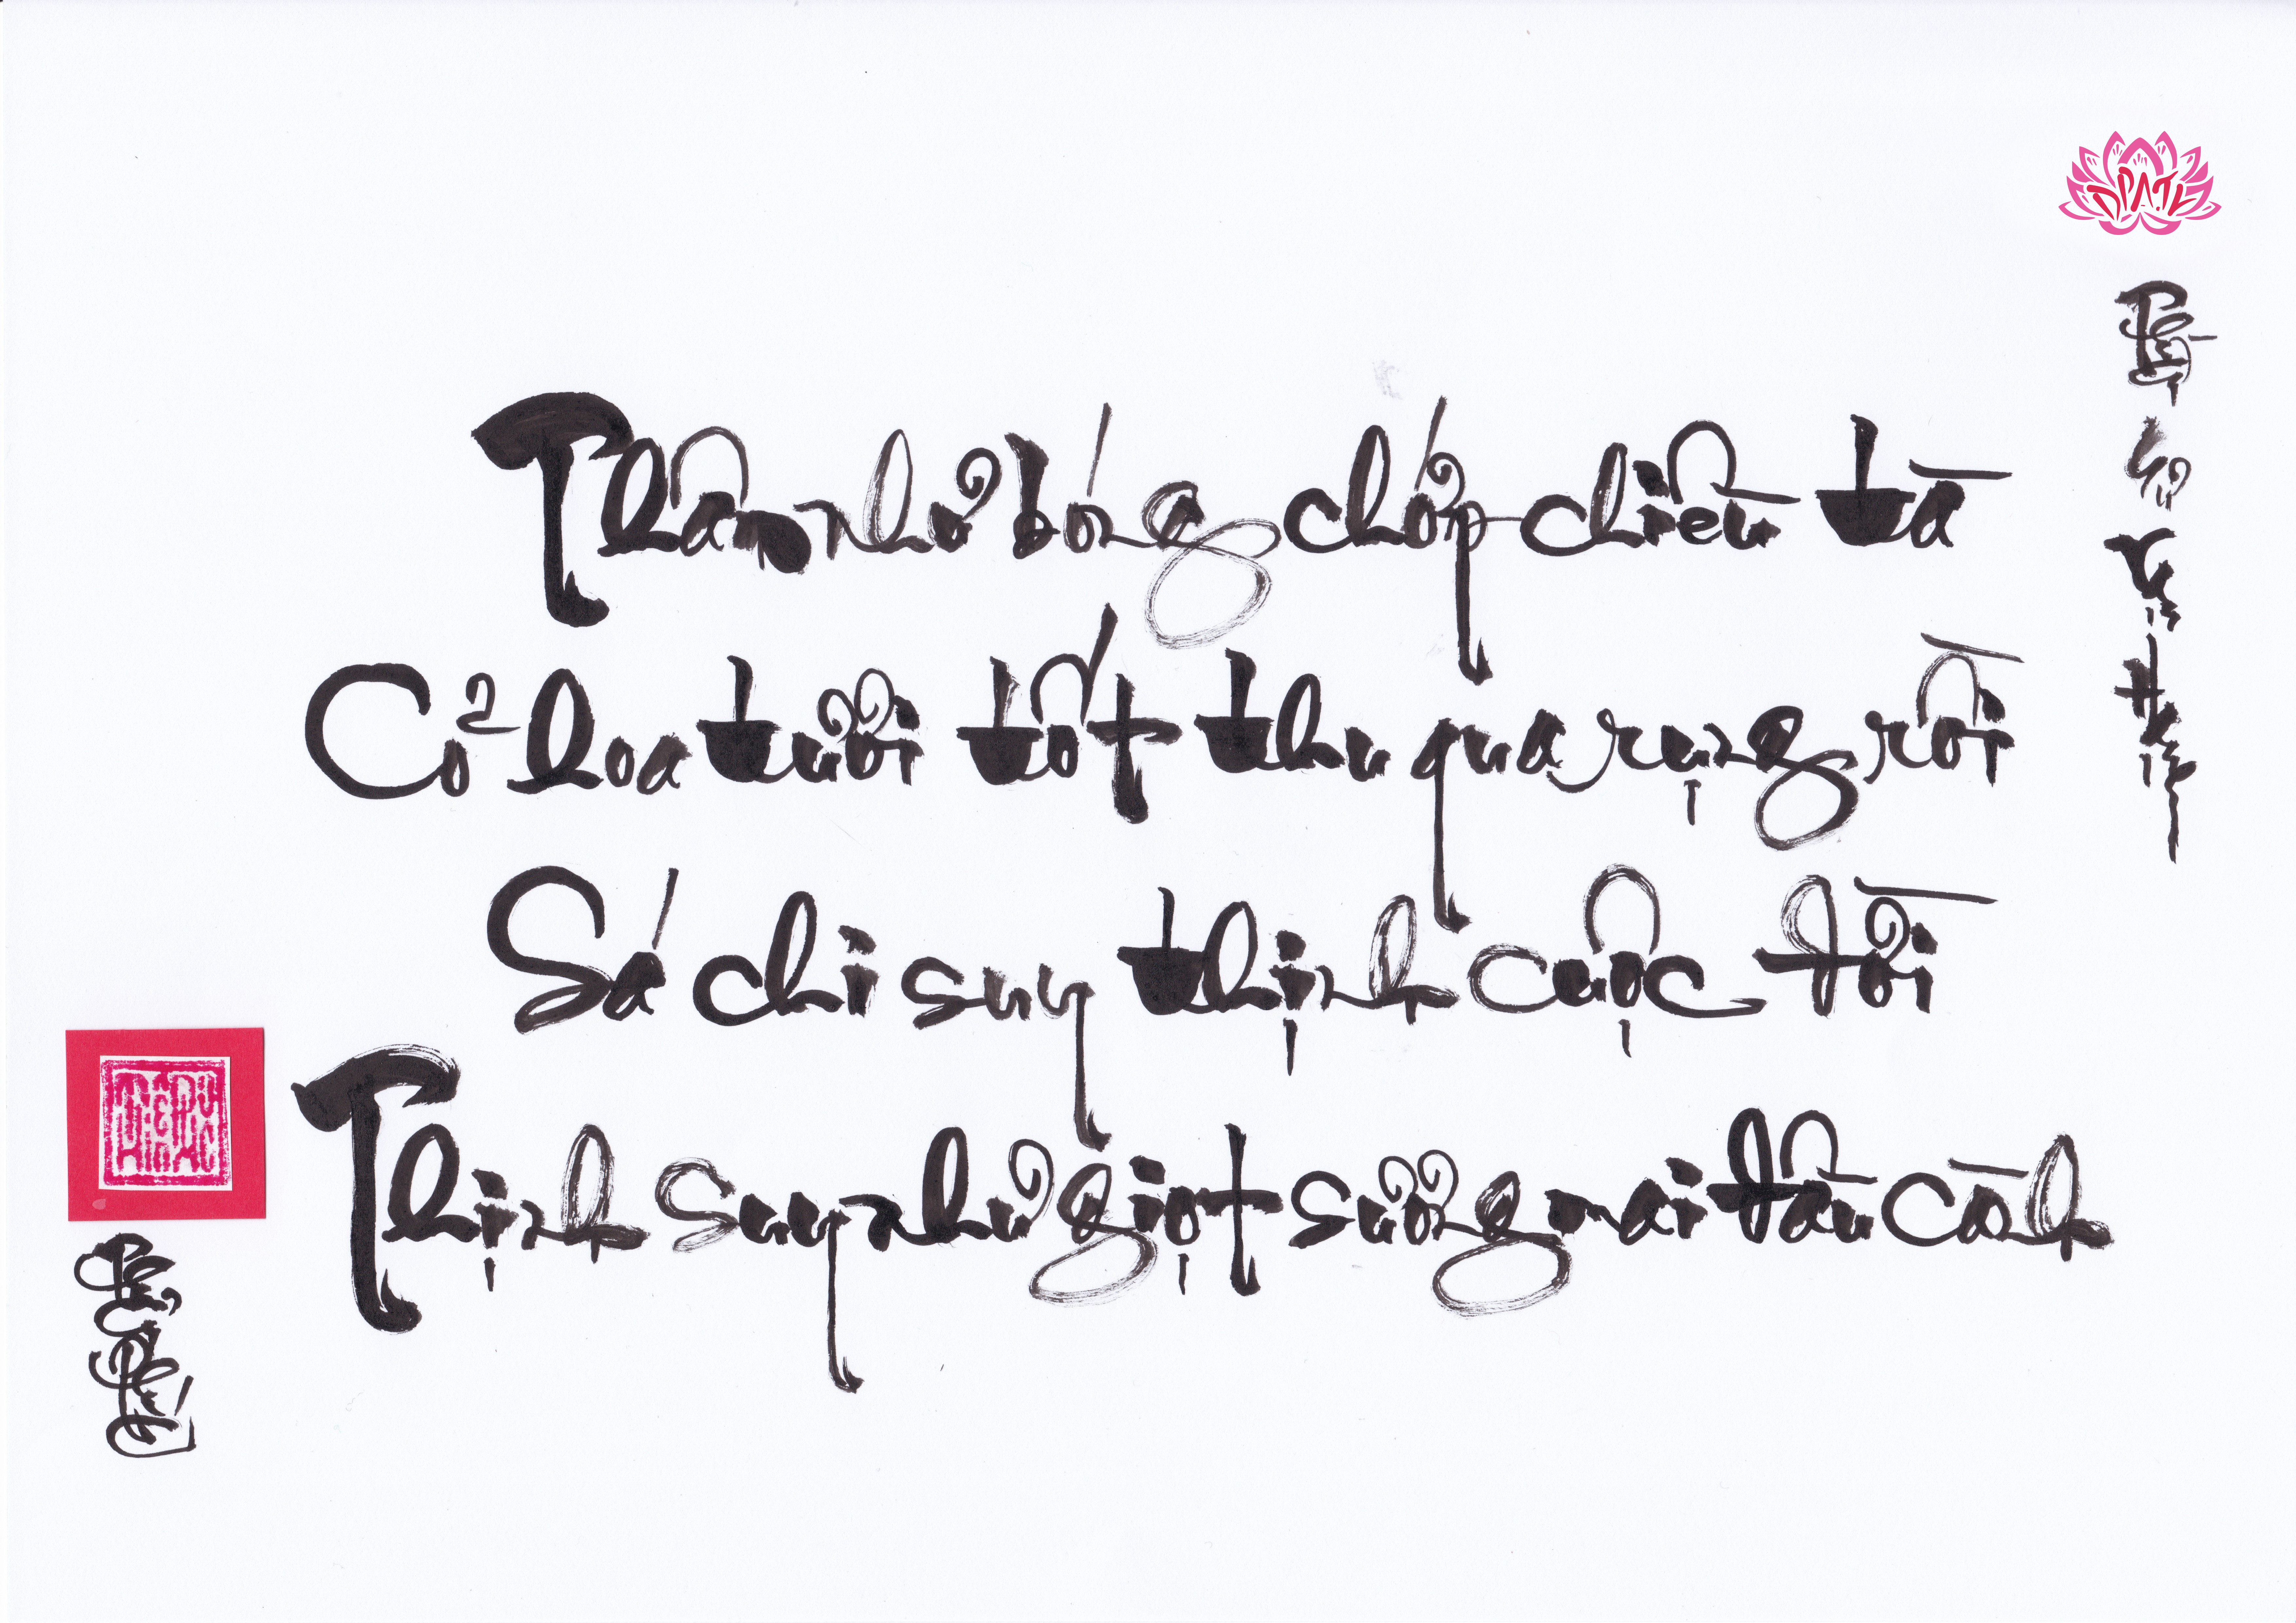 Thân như bóng chớp chiều tà
Cỏ hoa tươi tốt thu qua rụng rời
Sá chi suy thịnh cuộc đời
Thịnh suy như giọt sương mai đầu cành
DPATL
Vạn Hạnh